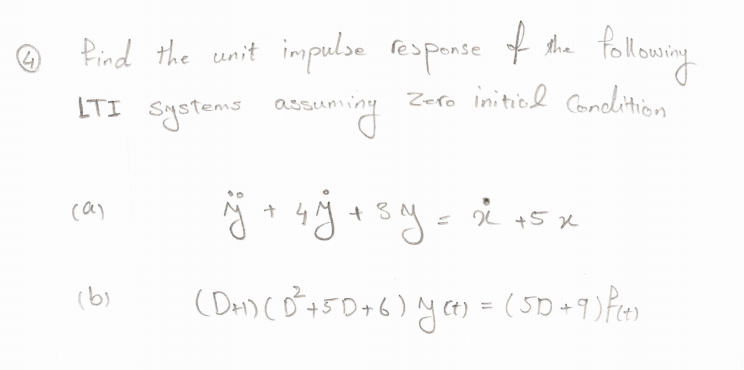 ④ Find the unit impulse response of the following
LTI Systems assuming Zero initial Condition
(a) ÿ + 4ẏ + 3y = ẋ + 5x
(b) (D+1)(D²+5D+6) y(t) = (5D+9)f(t)